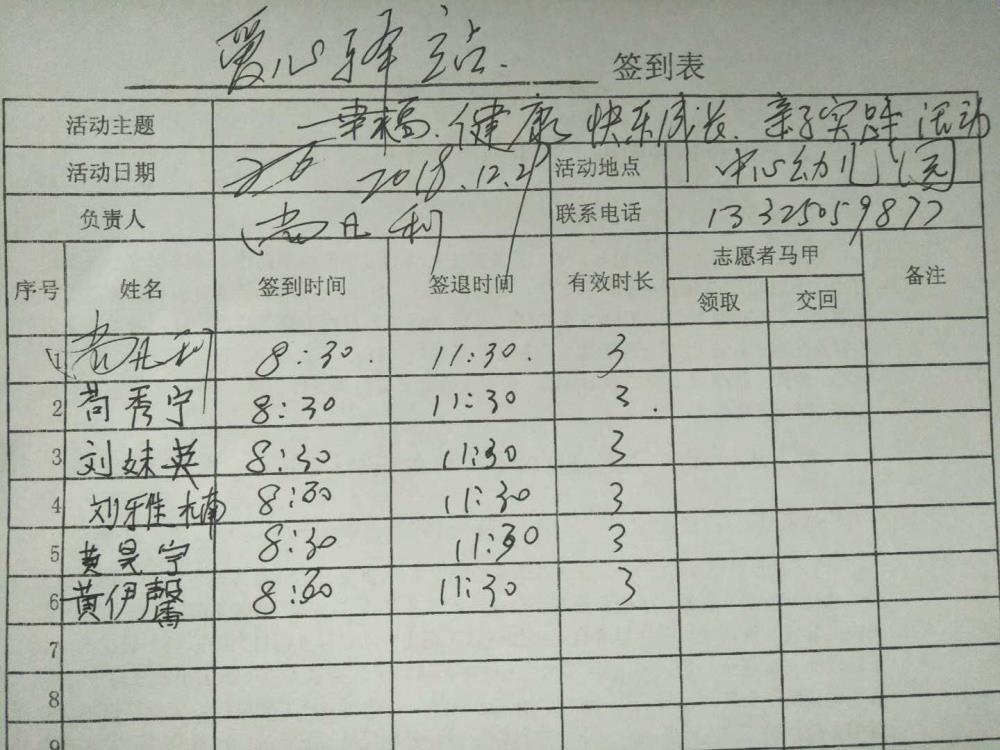 爱心驿站. 签到表
活动主题 幸福、健康 快乐成长、亲子实践活动
活动日期 2018.12.29 活动地点 中心幼儿园
负责人 尚凡利 联系电话 13325059877
序号 姓名 签到时间 签退时间 有效时长 志愿者马甲 备注
领取 交回
1 尚凡利 8:30. 11:30. 3
2 苟秀宁 8:30 11:30 3.
3 刘妹英 8:30 11:30 3
4 刘雅楠 8:30 11:30 3
5 黄昊宁 8:30 11:30 3
6 黄伊馨 8:30 11:30 3
7
8
9